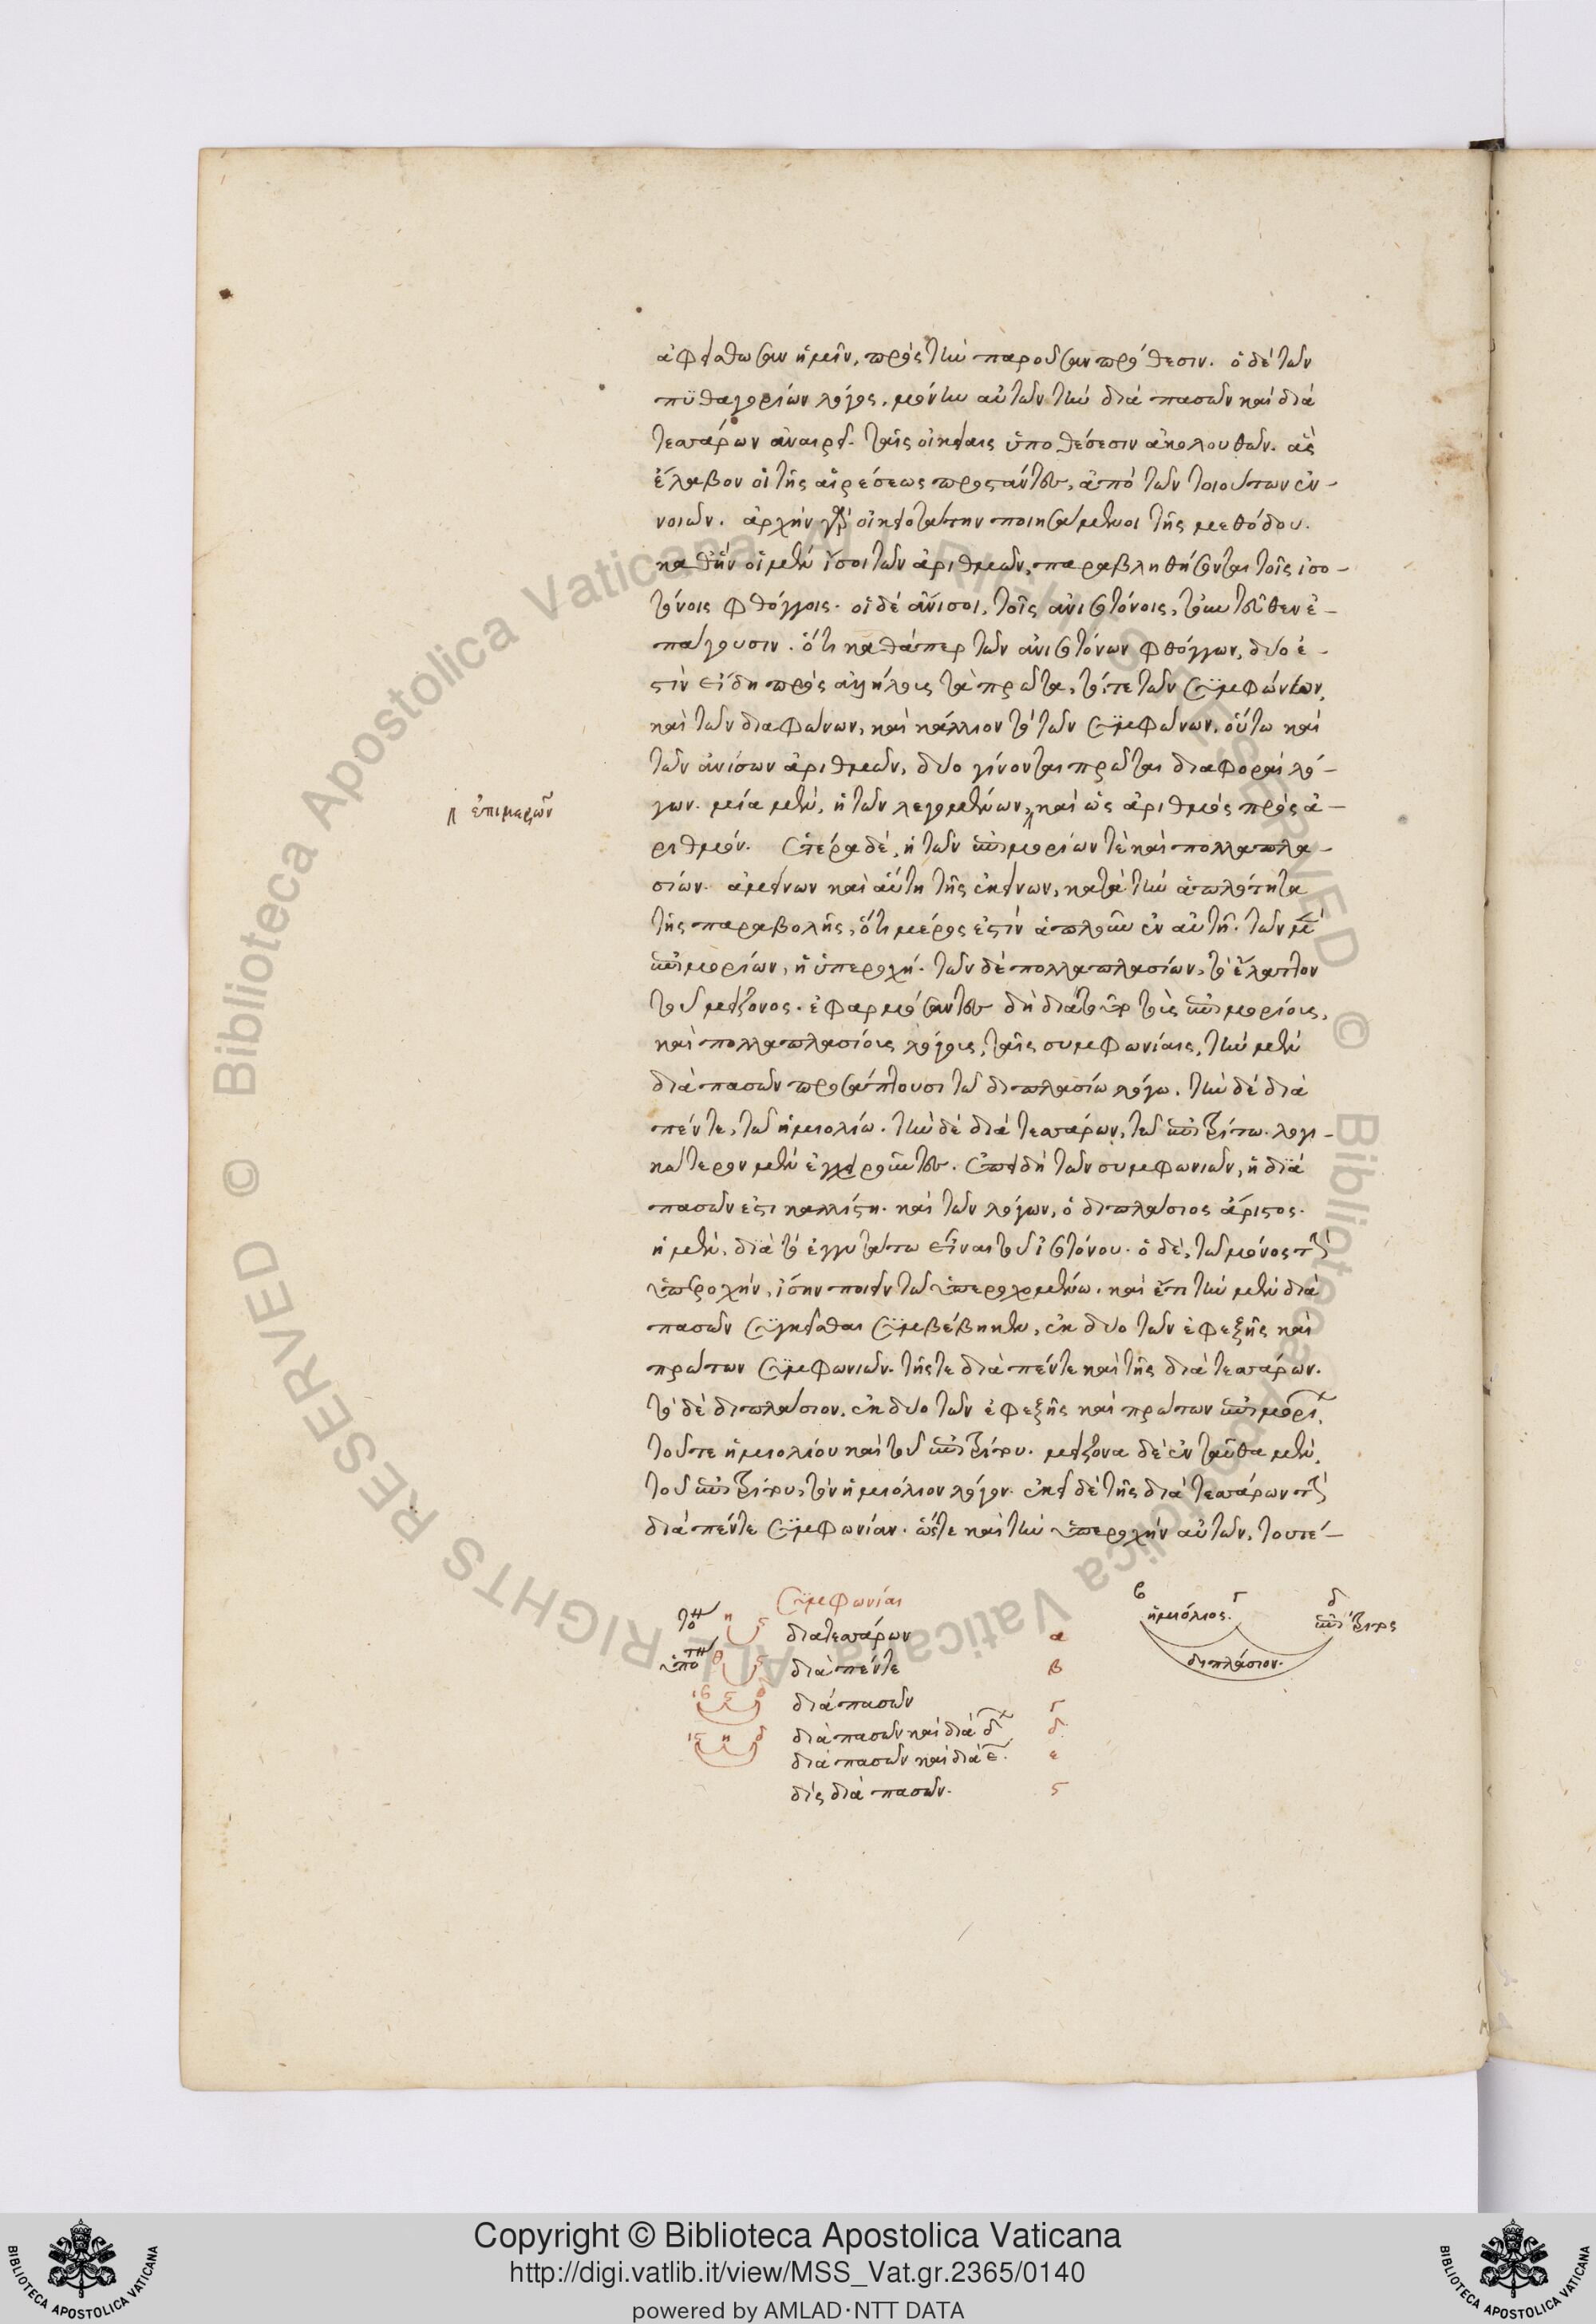 ἀφείσθωσαν ἡμῖν, πρὸς τὴν παροῦσαν πρόθεσιν. ὁ δὲ τῶν
πυθαγορείων λόγος, μόνην αὐτῶν τὴν διὰ πασῶν καὶ διὰ
τεσσάρων ἀναιρεῖ. ταῖς οἰκείαις ὑποθέσεσιν ἀκολουθῶν. ἃς
ἔλαβον οἱ τῆς αἱρέσεως προστάντες, ἀπὸ τῶν τοιούτων ἐν-
νοιῶν. ἀρχὴν γὰρ οἰκειοτάτην ποιησάμενοι τῆς μεθόδου.
καθ' ἣν οἱ μὲν ἴσοι τῶν ἀριθμῶν, παραβληθήσονται τοῖς ἰσο-
τόνοις φθόγγοις. οἱ δὲ ἄνισοι, τοῖς ἀνισοτόνοις,
πάγουσιν. ὅτι καθάπερ τῶν ἀνισοτόνων φθόγγων, δύο ἐ-
στὶν εἴδη πρὸς ἄλληλους τὰ πρῶτα, τό,τε τῶν συμφώνων,
καὶ τῶν διαφώνων, καὶ κάλλιον τὸ τῶν συμφώνων. οὕτω καὶ
τῶν ἀνίσων ἀριθμῶν, δύο γίνονται πρῶται διαφοραὶ λό-
γων. μία μὲν, ἡ τῶν λεγομένων, καὶ ὡς ἀριθμὸς πρὸς ἀ-
ἐπιμερῶν
ριθμόν. ἑτέρα δὲ, ἡ τῶν ἐπιμορίων τὲ καὶ πολλαπλα-
σίων. ἀμείνων καὶ αὕτη τῆς ἐκείνων, κατὰ τὴν ἁπλότητα
τῆς παραβολῆς, ὅτι μέρος ἐστὶν ἁπλοῦν ἐν αὐτῇ. τῶν μὲν
ἐπιμορίων, ἡ ὑπεροχή. τῶν δὲ πολλαπλασίων, τὸ ἔλαττον
τοῦ μείζονος. ἐφαρμόσαντες δὴ διὰ τοῦτο τοὺς ἐπιμορίους,
καὶ πολλαπλασίους λόγους, ταῖς συμφωνίαις, τὴν μὲν
διὰ πασῶν προσάπτουσι τῶ διπλασίω λόγω. τὴν δὲ διὰ
πέντε, τῶ ἡμιολίω. τὴν δὲ διὰ τεσσάρων, τῶ ἐπιτρίτω. λογι-
κώτερον μὲν ἐγχειροῦντες. ἐπειδὴ τῶν συμφωνιῶν, ἡ διὰ
πασῶν ἐστι καλλίστη. καὶ τῶν λόγων, ὁ διπλάσιος ἄριστος.
ἡ μὲν, διὰ τὸ ἐγγυτάτω εἶναι τοῦ ἰσοτόνου. ὁ δὲ, τῶ μόνος τὴν
ὑπεροχὴν, ἴσην ποιεῖν τῶ ὑπερεχομένω. καὶ ἔτι τὴν μὲν διὰ
πασῶν συγκεῖσθαι συμβέβηκεν, ἐκ δύο τῶν ἐφεξῆς καὶ
πρώτων συμφωνιῶν. τῆς τε διὰ πέντε καὶ τῆς διὰ τεσσάρων.
τὸ δὲ διπλάσιον, ἐκ δύο τῶν ἐφεξῆς καὶ πρώτων ἐπιμορίων,
τοῦ τε ἡμιολίου καὶ τοῦ ἐπιτρίτου. μείζονα δὲ ἐνταῦθα μὲν,
τοῦ ἐπιτρίτου, τὸν ἡμιόλιον λόγον. ἐκεῖ δὲ τῆς διὰ τεσσάρων τὴν
διὰ πέντε συμφωνίαν. ὥστε καὶ τὴν ὑπεροχὴν αὐτῶν, τουτέ-
συμφωνίαι
η ς διὰ τεσσάρων α
θ ς διὰ πέντε β
διὰ πασῶν γ
ις η δ διὰ πασῶν καὶ διὰ δ δ
διὰ πασῶν καὶ διὰ ε. ε
δὶς διὰ πασῶν. ς
β γ δ
ἡμιόλιος. ἐπίτριτος
διπλάσιον.
Copyright © Biblioteca Apostolica Vaticana
http://digi.vatlib.it/view/MSS_Vat.gr.2365/0140
powered by AMLAD·NTT DATA
BIBLIOTECA APOSTOLICA VATICANA
BIBLIOTECA APOSTOLICA VATICANA
© Biblioteca Apostolica Vaticana ALL RIGHTS RESERVED © Biblioteca Apostolica Vaticana ALL RIGHTS RESERVED